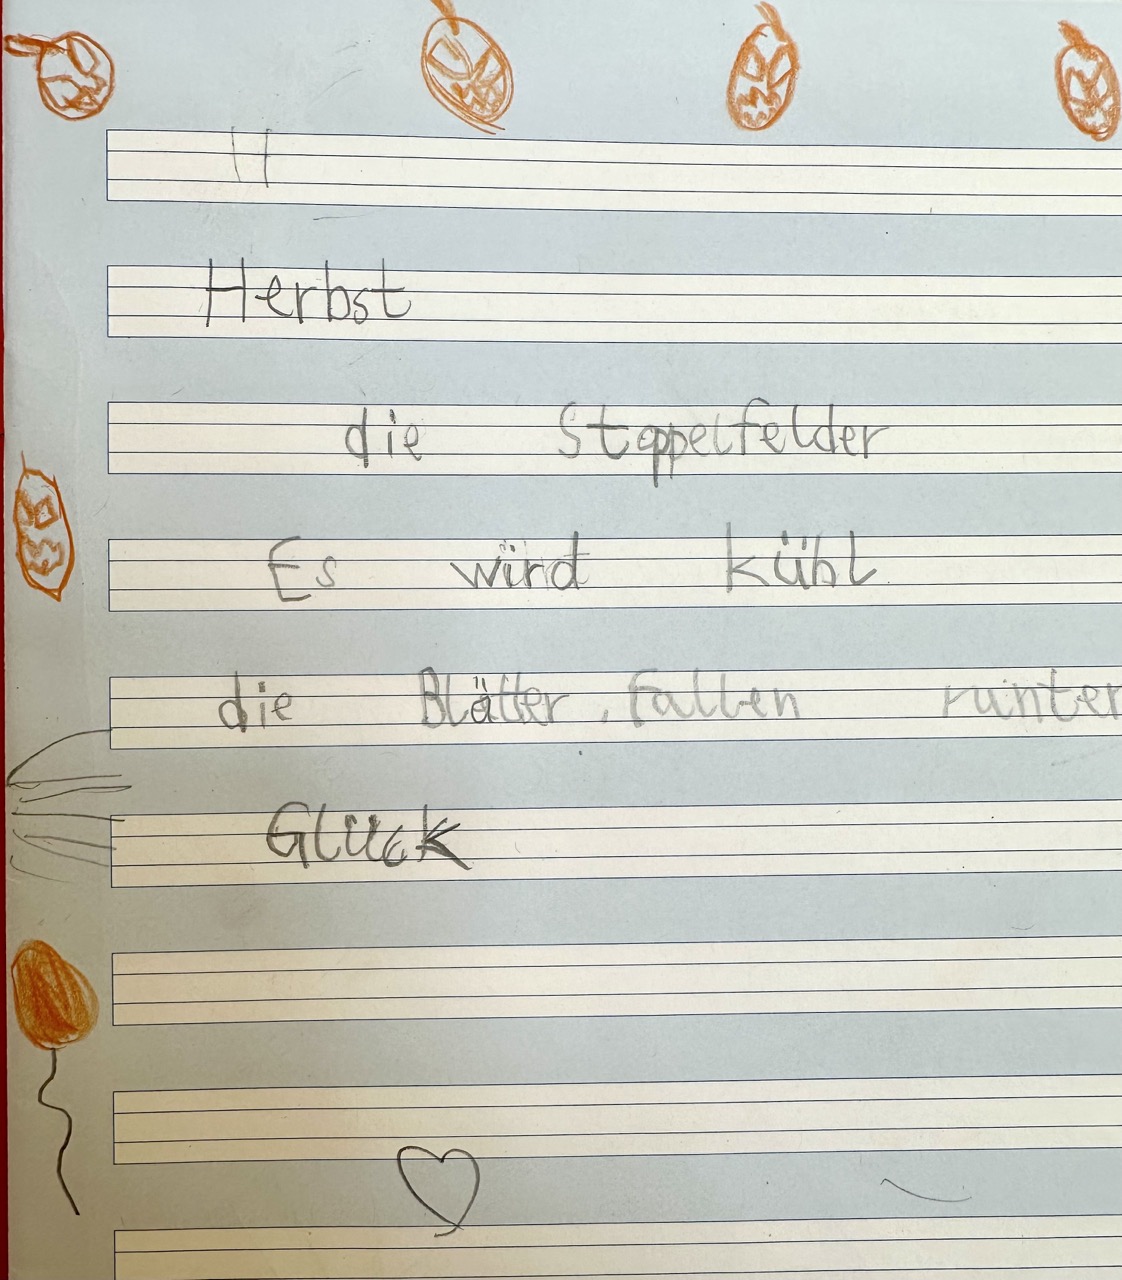 Herbst
die Stoppelfelder
Es wird kühl
die Blätter fallen runter
Glück